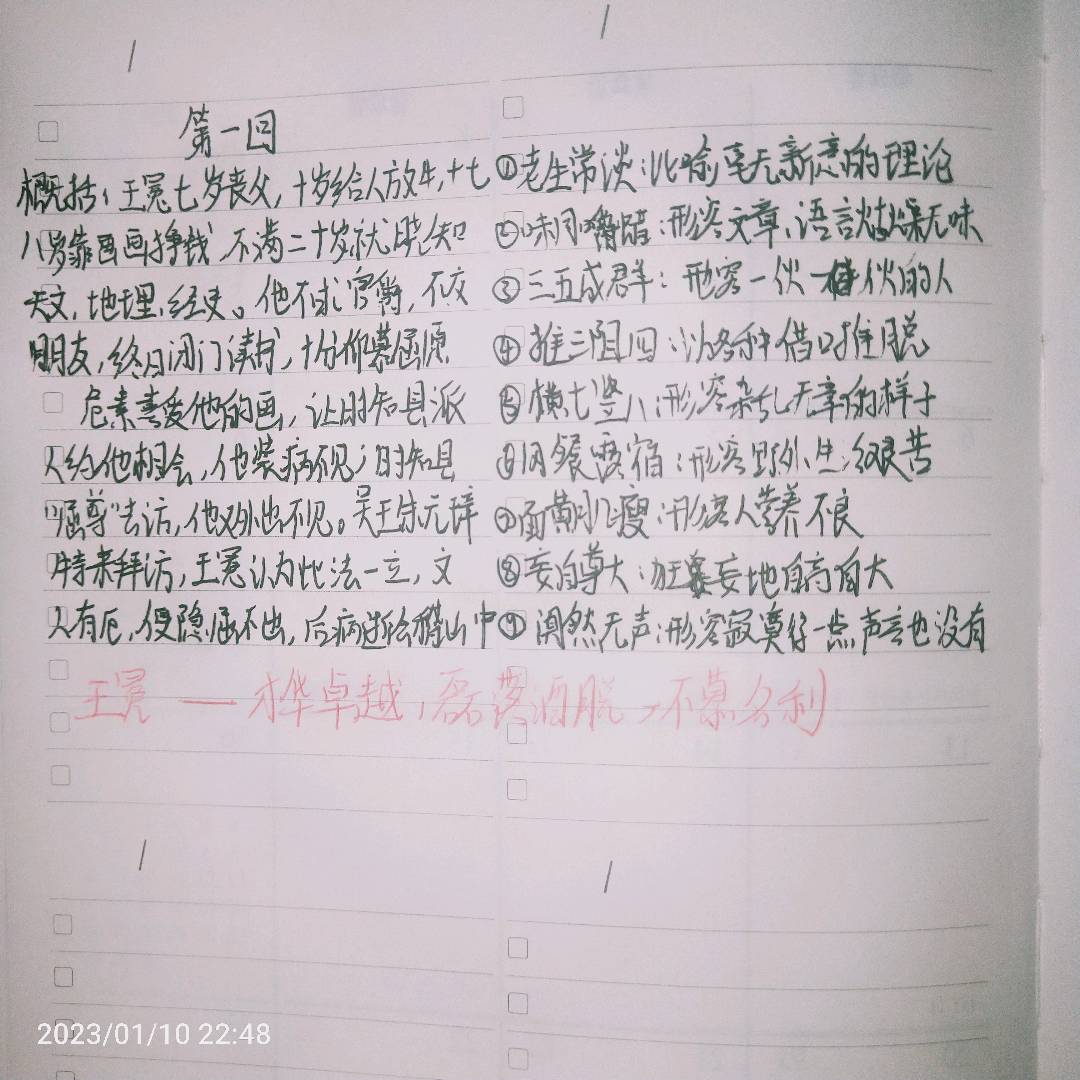 第一回
概括：王冕七岁丧父，十岁给人放牛，十七
八岁靠画画挣钱，不满二十岁就晓知
天文，地理，经史。他不求官爵，不交
朋友，终日闭门读书，十分仰慕屈原
危素喜爱他的画，让时知县派
人约他相会，他装病不见；时知县
"屈尊"去访，他又外出不见。吴王朱元璋
特来拜访，王冕认为此法一立，文
人有厄，便隐居不出，后病逝会稽山中
①老生常谈：比喻毫无新意的理论
②味同嚼蜡：形容文章、语言枯燥无味
③三五成群：形容一伙一伙的人
④推三阻四：以各种借口推脱
⑤横七竖八：形容杂乱无章的样子
⑥风餐露宿：形容野外生活艰苦
⑦面黄肌瘦：形容人营养不良
⑧妄自尊大：狂妄地自高自大
⑨阒然无声：形容寂寞得一点声音也没有
王冕——才华卓越，磊落洒脱，不慕名利
2023/01/10 22:48